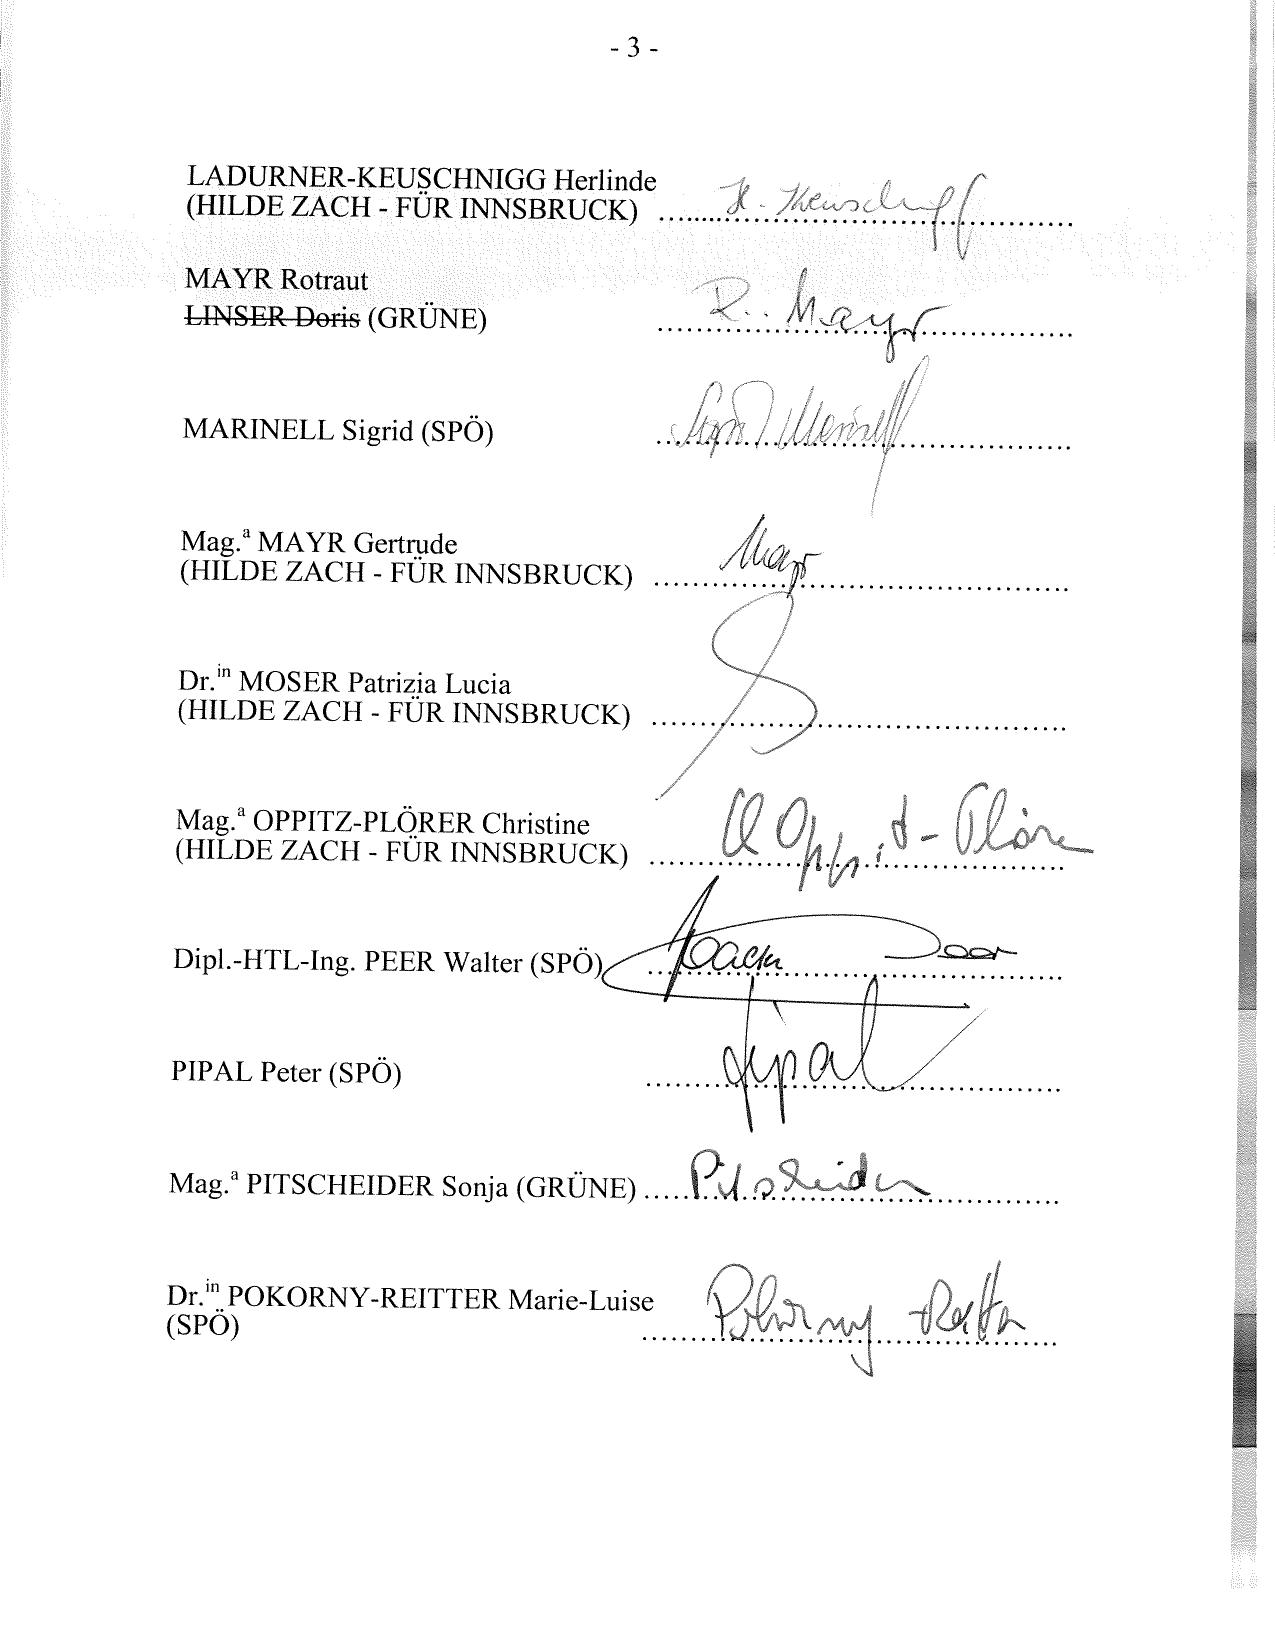 - 3 -
LADURNER-KEUSCHNIGG Herlinde
(HILDE ZACH - FÜR INNSBRUCK) ........ H. Keuschnigg
MAYR Rotraut
LINSER Doris (GRÜNE) ........ R. Mayr
MARINELL Sigrid (SPÖ) ........ Sigrid Marinell
Mag.ª MAYR Gertrude
(HILDE ZACH - FÜR INNSBRUCK) ........ Mayr
Dr.ⁱⁿ MOSER Patrizia Lucia
(HILDE ZACH - FÜR INNSBRUCK) ........
Mag.ª OPPITZ-PLÖRER Christine
(HILDE ZACH - FÜR INNSBRUCK) ........ Oppitz-Plörer
Dipl.-HTL-Ing. PEER Walter (SPÖ) ........
PIPAL Peter (SPÖ) ........ Pipal
Mag.ª PITSCHEIDER Sonja (GRÜNE) ........ Pitscheider
Dr.ⁱⁿ POKORNY-REITTER Marie-Luise
(SPÖ) ........ Pokorny-Reitter